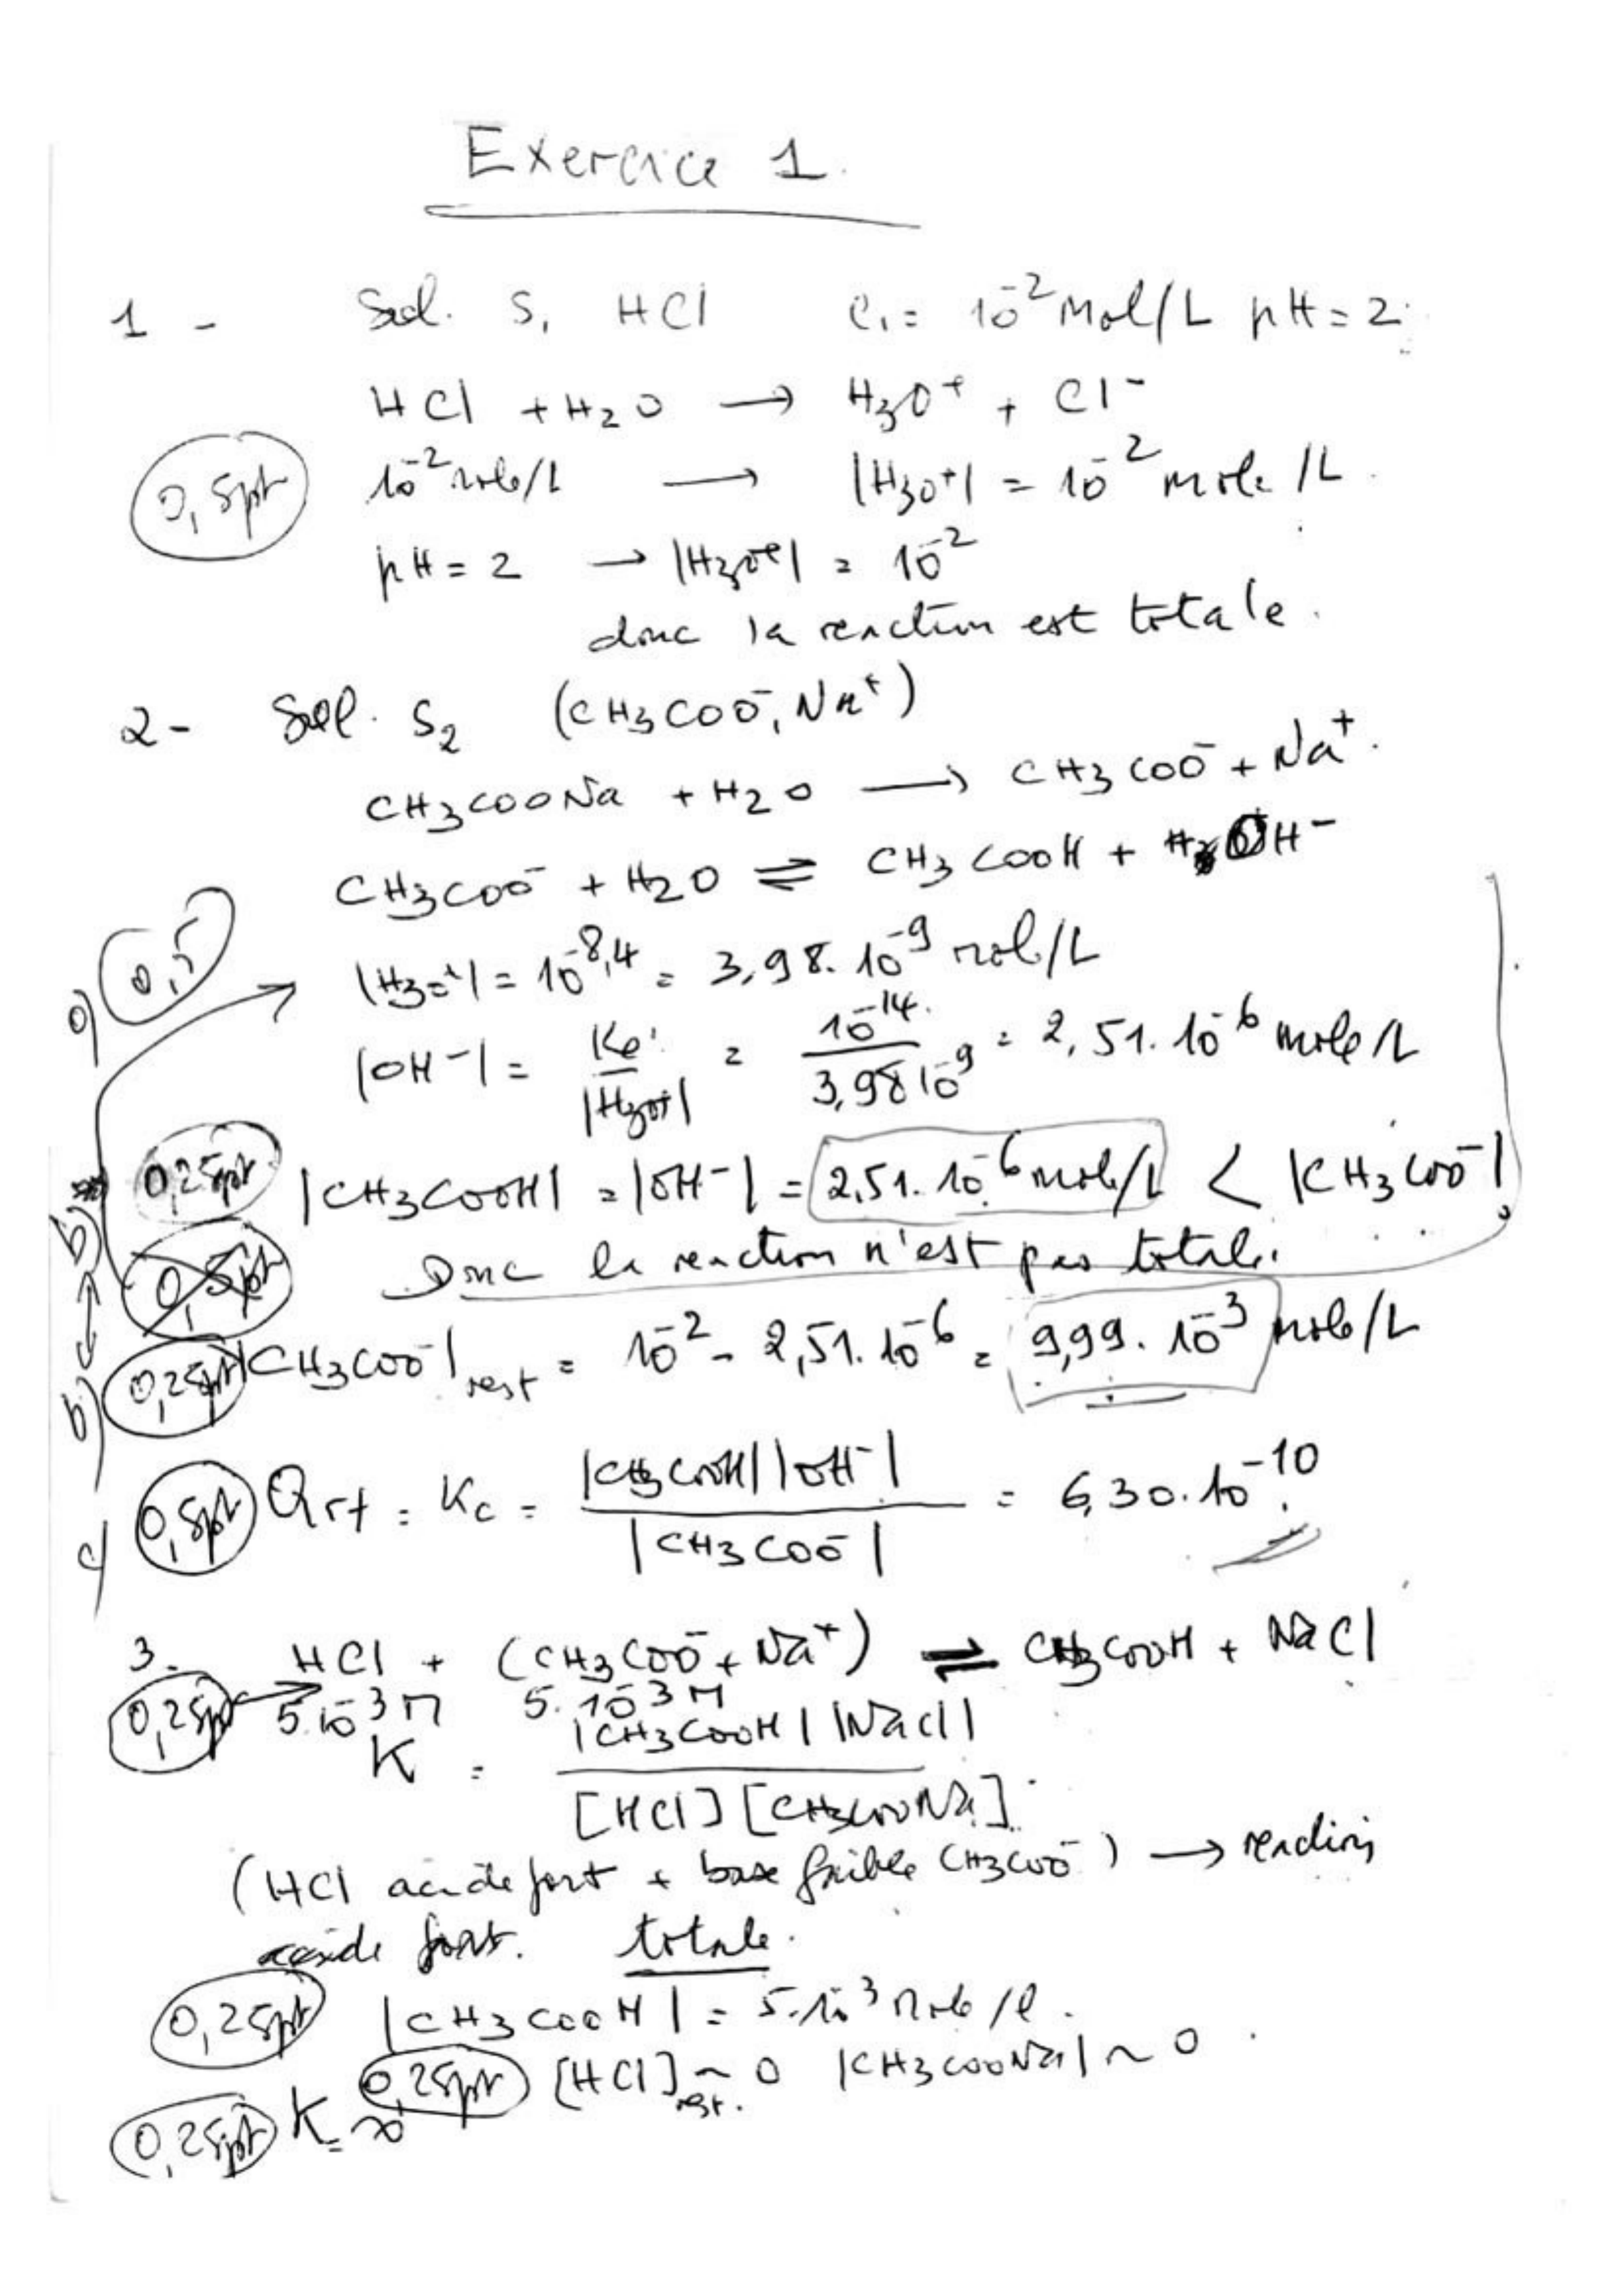 Exercice 1.
1 - Sol. S₁ HCl C₁ = 10⁻² Mol/L pH = 2.
HCl + H₂O → H₃O⁺ + Cl⁻
0,5pt 10⁻² mole/L → |H₃O⁺| = 10⁻² mole /L.
pH = 2 → |H₃O⁺| = 10⁻²
donc la reaction est totale.
2 - Sol. S₂ (CH₃COO⁻, Na⁺)
CH₃COONa + H₂O → CH₃COO⁻ + Na⁺.
CH₃COO⁻ + H₂O ⇌ CH₃COOH + OH⁻
a) 0,5 |H₃O⁺| = 10⁻⁸,⁴ = 3,98. 10⁻⁹ mol/L
|OH⁻| = Ke / |H₃O⁺| = 10⁻¹⁴ / 3,98 10⁻⁹ = 2,51. 10⁻⁶ mole/L
b) 0,25pt |CH₃COOH| = |OH⁻| = 2,51. 10⁻⁶ mole/L < |CH₃COO⁻|
0,5pt Donc la reaction n'est pas totale.
b) 0,25pt |CH₃COO⁻|rest = 10⁻² - 2,51. 10⁻⁶ = 9,99. 10⁻³ mole/L
c) 0,5pt Qrf = Kc = |CH₃COOH| |OH⁻| / |CH₃COO⁻| = 6,30. 10⁻¹⁰
3. HCl + (CH₃COO⁻ + Na⁺) ⇌ CH₃COOH + NaCl
0,25pt 5.10⁻³ M 5. 10⁻³ M
K = |CH₃COOH| |NaCl| / [HCl] [CH₃COONa]
(HCl acide fort + base faible CH₃COO⁻) → reaction
acide fort. totale.
0,25pt |CH₃COOH| = 5.10⁻³ mole /l.
0,25pt [HCl]rest. ~ 0 |CH₃COONa| ~ 0.
0,25pt K = ∞